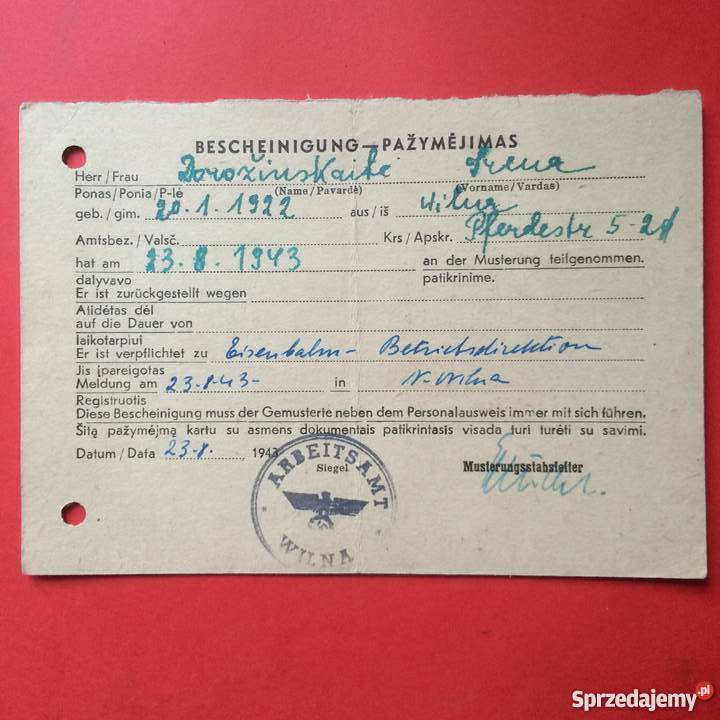 BESCHEINIGUNG—PAŽYMĖJIMAS
Herr/Frau Dorožinskaitė Irena
Ponas/Ponia/P-lė (Name/Pavardė) (Vorname/Vardas)
geb./gim. 20.1.1922 aus/iš Wilna
Amtsbez./Valsč. Krs/Apskr. Pferdestr 5-21
hat am 23.8.1943 an der Musterung teilgenommen.
dalyvavo patikrinime.
Er ist zurückgestellt wegen
Atidėtas dėl
auf die Dauer von
laikotarpiui
Er ist verpflichtet zu Eisenbahn- Betriebsdirektion
Jis įpareigotas
Meldung am 23.8.43- in N-Wilna
Registruotis
Diese Bescheinigung muss der Gemusterte neben dem Personalausweis immer mit sich führen.
Šitą pažymėjmą kartu su asmens dokumentais patikrintasis visada turi turėti su savimi.
Datum/Data 23.8. 1943
Siegel
Musterungsstabsleiter
ARBEITSAMT
WILNA
Sprzedajemy.pl